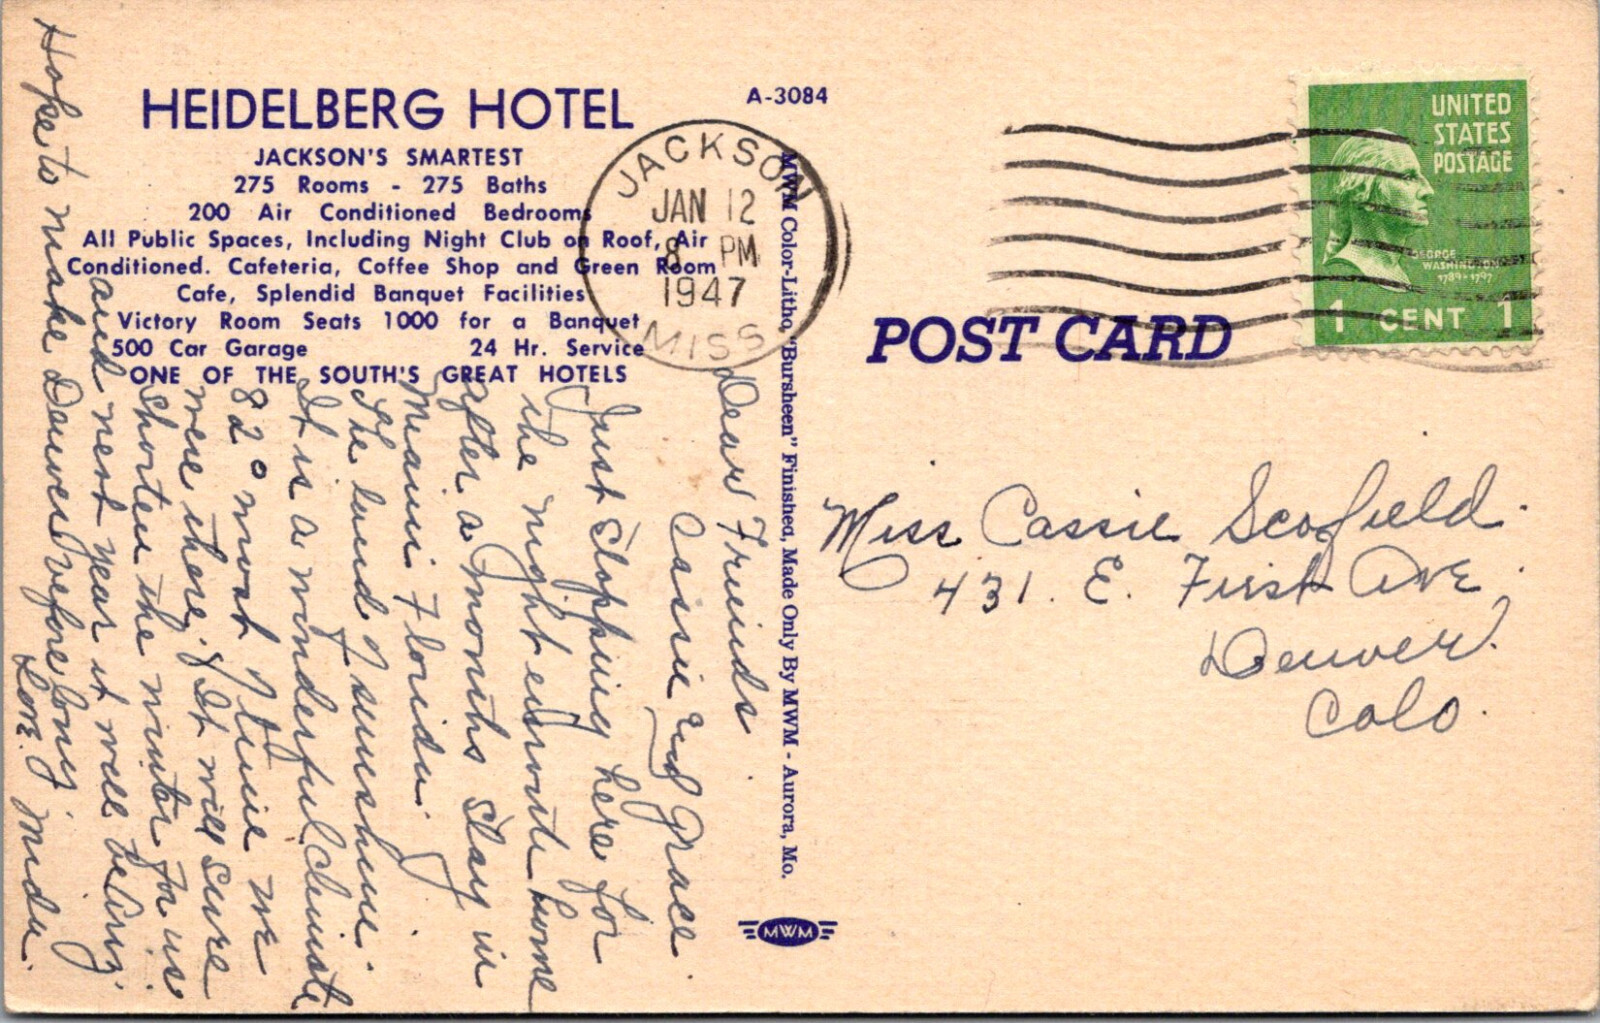 HEIDELBERG HOTEL
JACKSON'S SMARTEST
275 Rooms - 275 Baths
200 Air Conditioned Bedrooms
All Public Spaces, Including Night Club on Roof, Air
Conditioned. Cafeteria, Coffee Shop and Green Room
Cafe, Splendid Banquet Facilities
Victory Room Seats 1000 for a Banquet
500 Car Garage 24 Hr. Service
ONE OF THE SOUTH'S GREAT HOTELS
A-3084
JACKSON
JAN 12
8 PM
1947
MISS
MWM Color-Litho, "Bursheen" Finished, Made Only By MWM - Aurora, Mo.
MWM
POST CARD
UNITED
STATES
POSTAGE
GEORGE
WASHINGTON
1789-1797
1 CENT 1
Miss Cassie Scofield.
431. E. First Ave.
Denver.
Colo.
Dear Friends
Cassie and Grace.
Just stopping here for
the night enroute home
after a months stay in
Miami Florida.
The land of sunshine.
It is a wonderful climate
82° most of time we
were there. It will sure
shorten the winter for us.
and next year it will be
Hope to make Denver before long
Love. Mida.